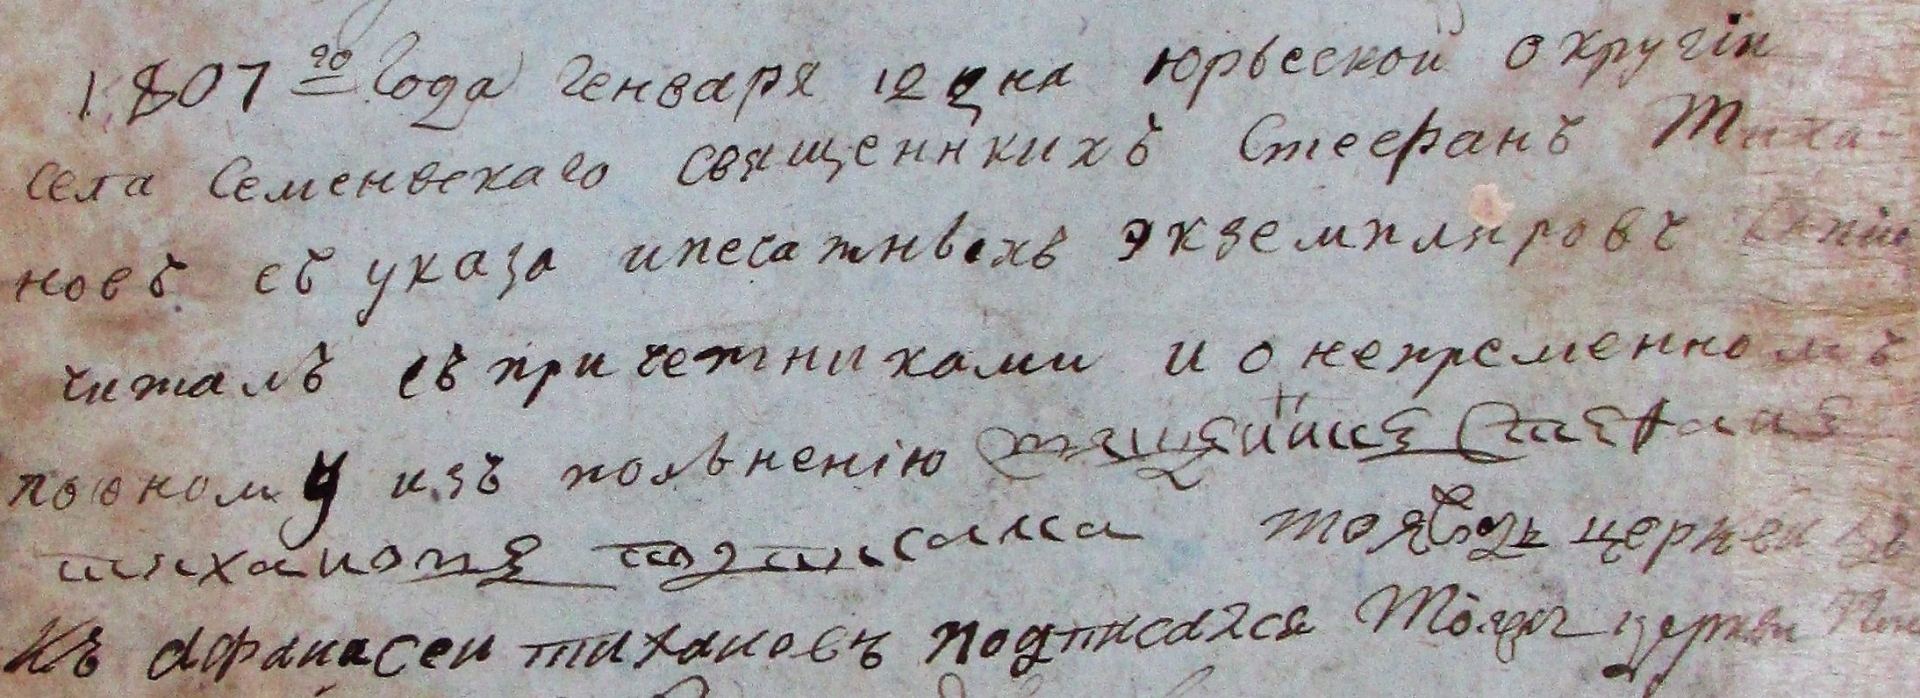 1807го Года Генваря 12 дня юрьевской округи
села Семеновскаго священникихъ Стефанъ Тиха-
новъ съ указа ипечатныхъ экземпляровъ копии
читалъ съ причетниками и о непременномъ
повномъ у изъ польнению священникъ Стефанъ
тихановъ подписался тояжъ церкви дъ
къ афанасеи тихановъ подписался Тояжъ церкви Пон